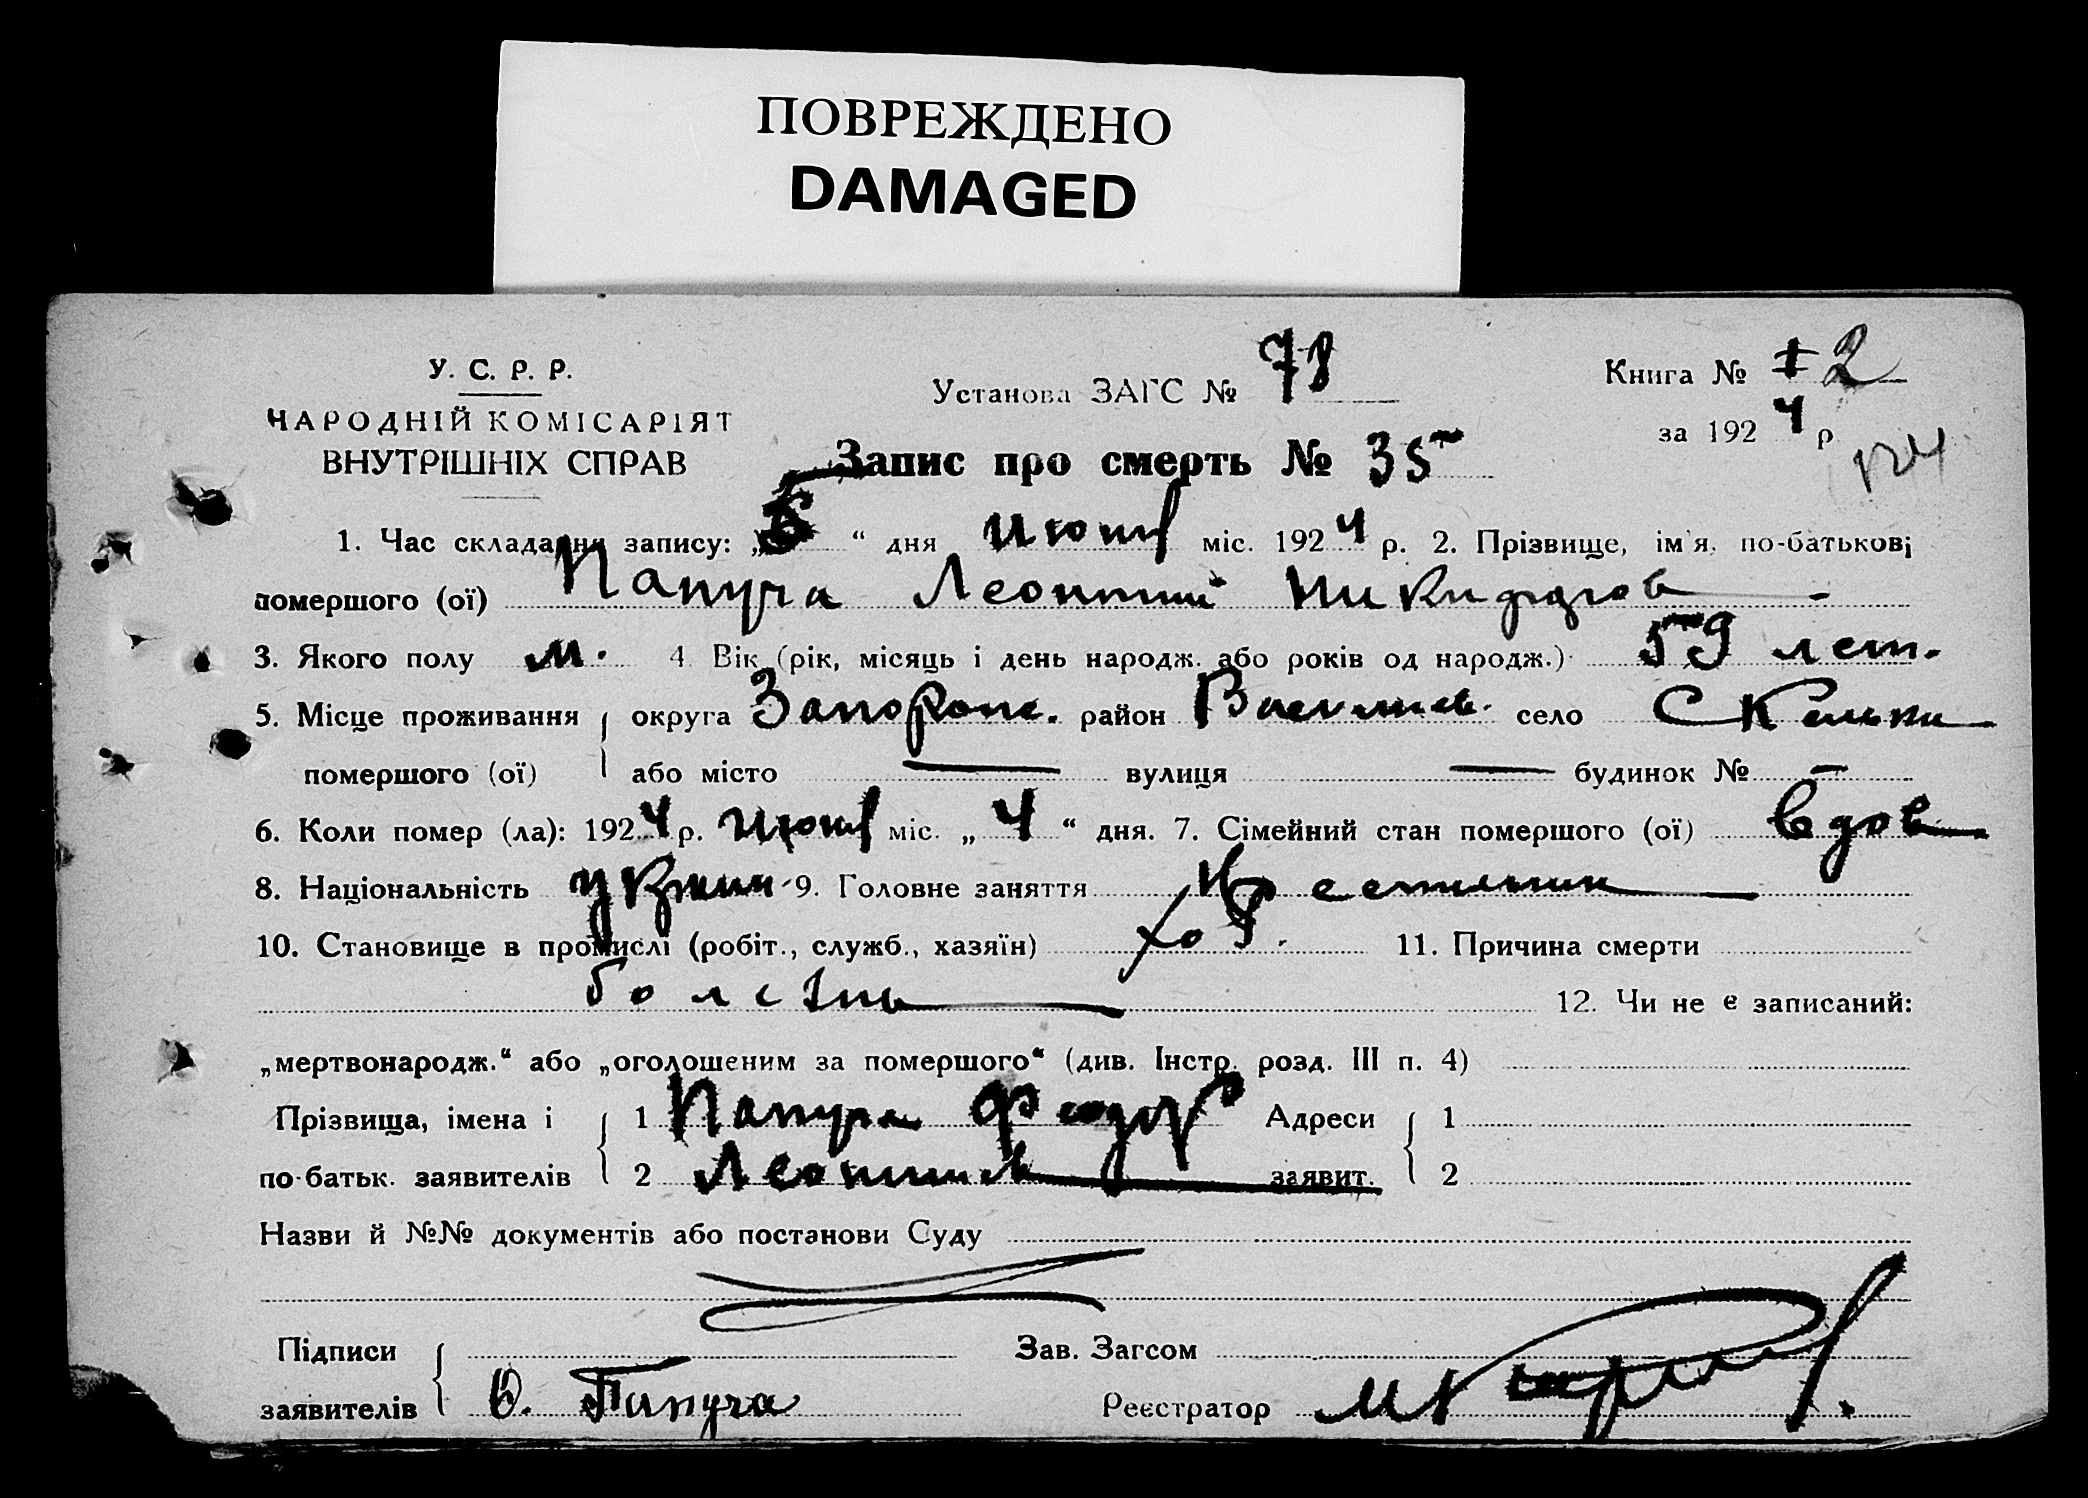 ПОВРЕЖДЕНО
DAMAGED
У. С. Р. Р.
НАРОДНІЙ КОМІСАРІЯТ
ВНУТРІШНІХ СПРАВ
Установа ЗАГС № 78
Книга № 2
за 1924 р
Запис про смерть № 35
1. Час складання запису: „5“ дня Июня міс. 1924 р. 2. Прізвище, ім'я, по-батькові
помершого (ої) Папуча Леонтий
3. Якого полу м. 4 Вік (рік, місяць і день народж. або років од народж.) 59 лет.
5. Місце проживання округа Запорож. район Васильев. село Скельки
помершого (ої) або місто — вулиця — будинок № —
6. Коли помер (ла): 1924 р. Июня міс. „4“ дня. 7. Сімейний стан помершого (ої) вдов
8. Національність 9. Головне заняття
10. Становище в промислі (робіт., служб., хазяїн) 11. Причина смерти
болезнь 12. Чи не є записаний:
„мертвонародж.“ або „оголошеним за помершого“ (див. Інстр. розд. III п. 4)
Прізвища, імена і 1 Папуча Феодор Адреси 1
по-батьк. заявителів 2 Леонтиев заявит. 2
Назви й №№ документів або постанови Суду
Підписи Зав. Загсом
заявителів Ф. Папуча Реєстратор